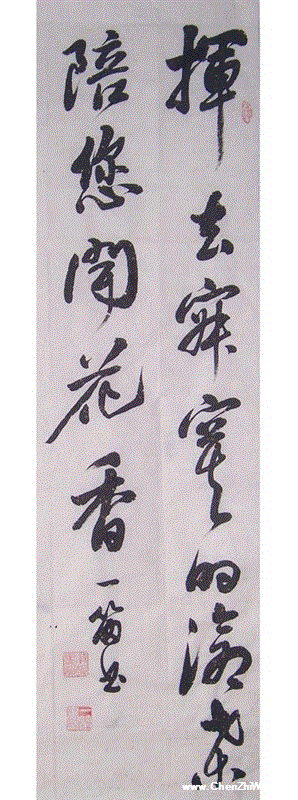 揮去寂寞的滄桑
陪您聞花香
一笛书
www.ChenZhiW